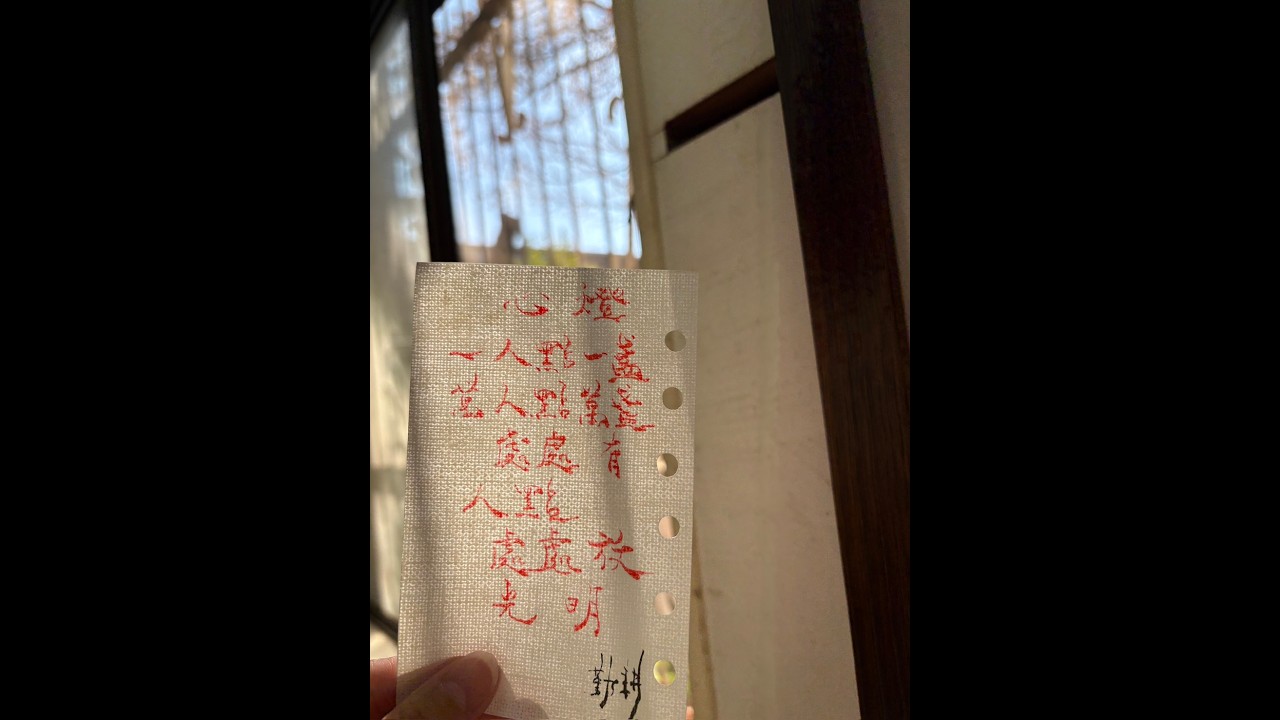 心燈
一人點一盞
萬人點萬盞
處處有
人點
處處放
光明
勤耕